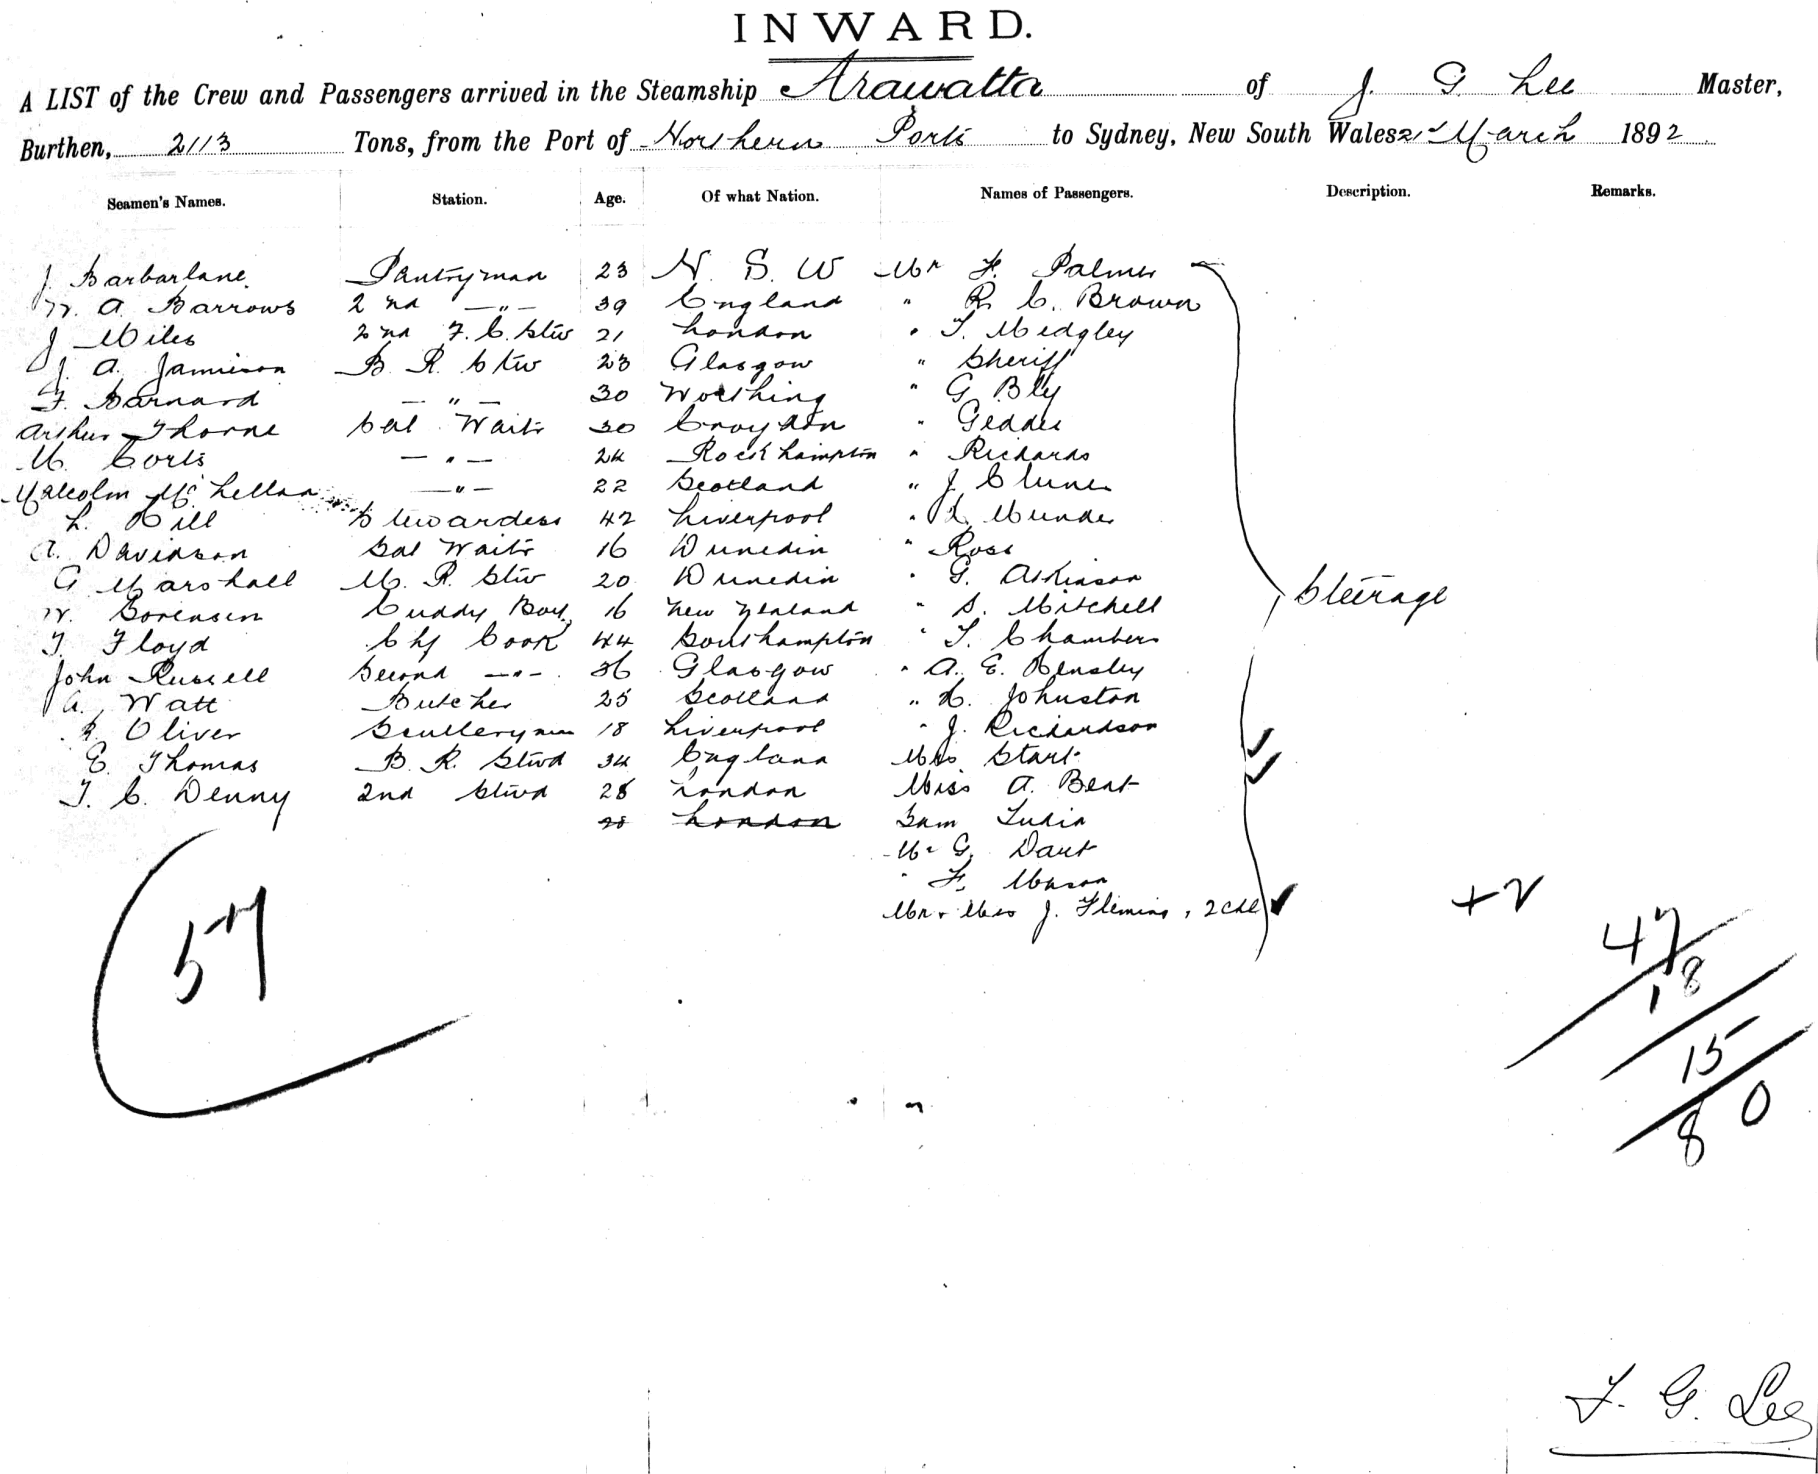 INWARD.
A LIST of the Crew and Passengers arrived in the Steamship Arawatta of J. G. Lee Master,
Burthen, 2113 Tons, from the Port of Northern Ports to Sydney, New South Wales 21st March 1892
Seamen's Names. Station. Age. Of what Nation. Names of Passengers. Description. Remarks.
J. Barbarlane. Pantryman 23 N. S. W Mr F. Palmer
W. A. Barrows 2nd —"— 39 England " R. C. Brown
J Miles 2nd F. C. Stw 21 London " T. Medgley
J. A. Jamieson B. R. Stw 23 Glasgow " Sheriff
F. Barnard —"— 30 Worthing " G Bly
Arthur Thorne Sal Waitr 30 Croydon " Geddes
M. Corts —"— 24 Rockhampton " Richards
Malcolm McLellan —"— 22 Scotland " J Clunes
L. Hill Stewardess 42 Liverpool " Munder
A. Davidson Sal Waitr 16 Dunedin " Ross
G Marshall M. R. Stw 20 Dunedin " G. Atkinson
W. Sorensen Cuddy Boy. 16 New Zealand " S. Mitchell
Steerage
T. Floyd Chf Cook 44 Southampton " T. Chambers
John Russell Second —"— 36 Glasgow " A. E. Hensley
A. Watt Butcher 25 Scotland " H. Johnston
R. Oliver Scullery man 18 Liverpool " J. Richardson
E. Thomas B. R. Stwd 34 England Mrs Start
T. C. Denny 2nd Stwd 28 London Miss A. Bent
28 London Sam Tudia
Mr G. Dart
" F. Mason
Mr & Mrs J. Fleming, 2 Chd
+2
57
47
18
15
80
J. G. Lee